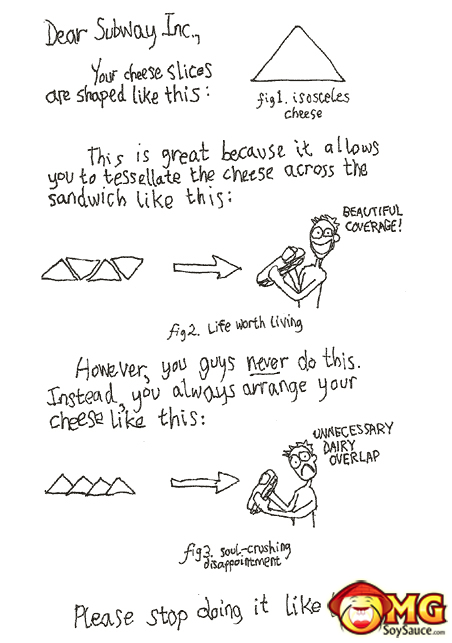 Dear Subway Inc.,
Your cheese slices
are shaped like this:
fig1. isosceles
cheese
This is great because it allows
you to tessellate the cheese across the
sandwich like this:
BEAUTIFUL
COVERAGE!
fig2. Life worth living
However, you guys never do this.
Instead, you always arrange your
cheese like this:
UNNECESSARY
DAIRY
OVERLAP
fig3. soul-crushing
disappointment
Please stop doing it like
OMG
SoySauce.com